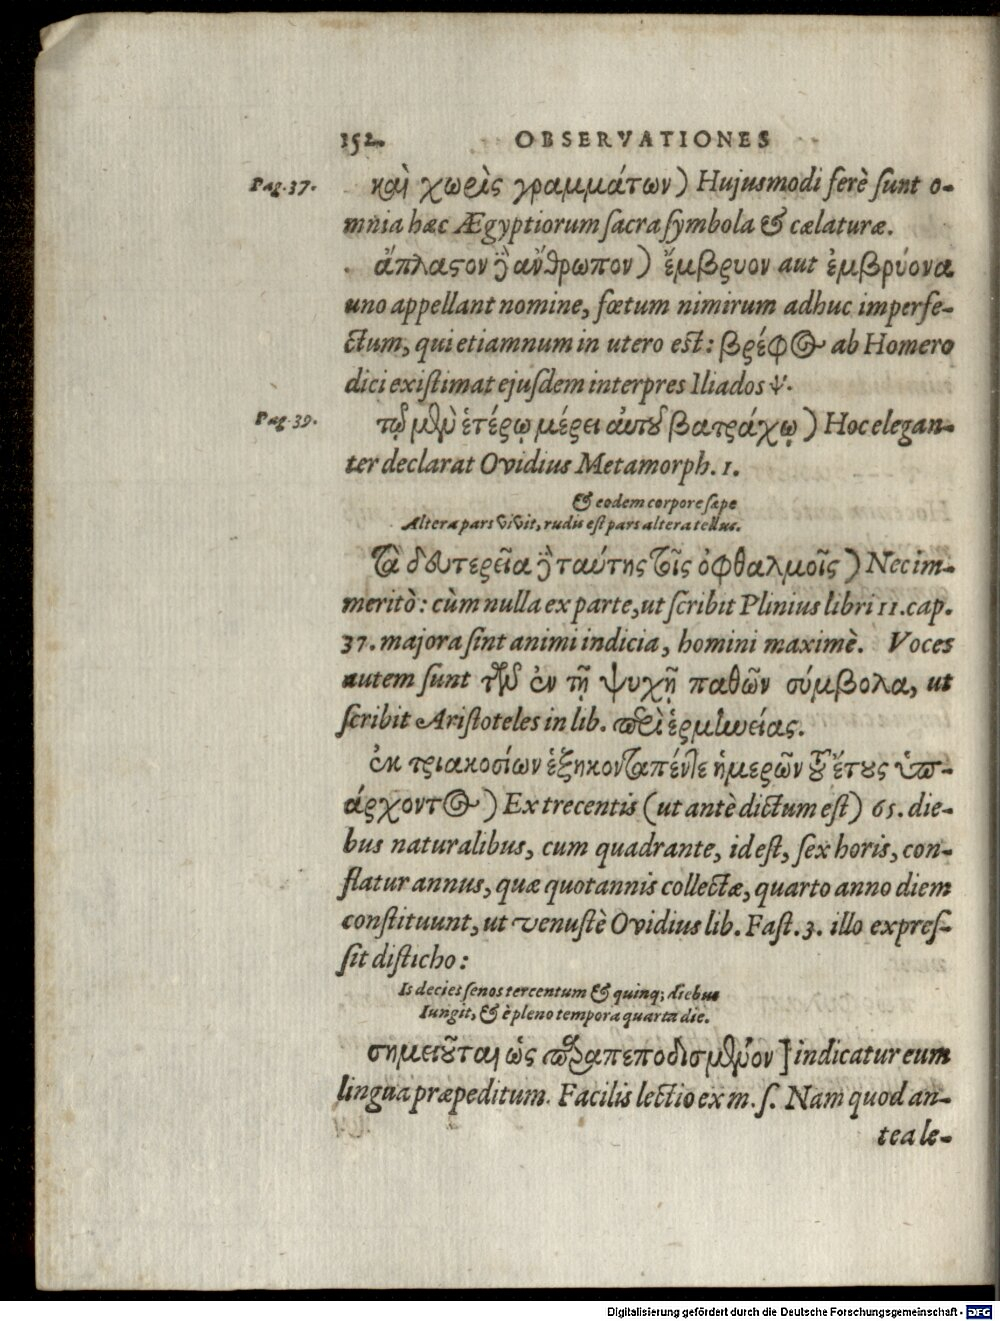 152. OBSERVATIONES
Pag. 37. καὶ χωρὶς γραμμάτων) Hujusmodi ferè sunt o-
mnia hæc Ægyptiorum sacra symbola & cælaturæ.
ἄπλαϛον ϳ̀ ἄνθρωπον) ἔμβρυον aut ἐμβρύονα
uno appellant nomine, fœtum nimirum adhuc imperfe-
ctum, qui etiamnum in utero est: βρέφος ab Homero
dici existimat ejusdem interpres Iliados ψ.
Pag. 39. τῷ μὲν ἑτέρῳ μέρει αὐτοῦ βατράχῳ) Hoc elegan-
ter declarat Ovidius Metamorph. 1.
& eodem corpore sæpe
Altera pars vivit, rudis est pars altera tellus.
Τὰ δευτερεῖα ταύτης τοῖς ὀφθαλμοῖς) Nec im-
meritò: cùm nulla ex parte, ut scribit Plinius libri 11. cap.
37. majora sint animi indicia, homini maximè. Voces
autem sunt τῶν ἐν τῇ ψυχῇ παθῶν σύμβολα, ut
scribit Aristoteles in lib. περὶ ἑρμηνείας.
ἐκ τριακοσίων ἑξηκονταπέντε ἡμερῶν τοῦ ἔτους ὑπ-
άρχοντος) Ex trecentis (ut antè dictum est) 65. die-
bus naturalibus, cum quadrante, id est, sex horis, con-
flatur annus, quæ quotannis collectæ, quarto anno diem
constituunt, ut venustè Ovidius lib. Fast. 3. illo expres-
sit disticho:
Is decies senos tercentum & quinq; diebus
Iungit, & è pleno tempora quarta die.
σημειοῦται ὡς παραπεποδισμένον] indicatur eum
lingua præpeditum. Facilis lectio ex m. s. Nam quod an-
tea le-
Digitalisierung gefördert durch die Deutsche Forschungsgemeinschaft - DFG